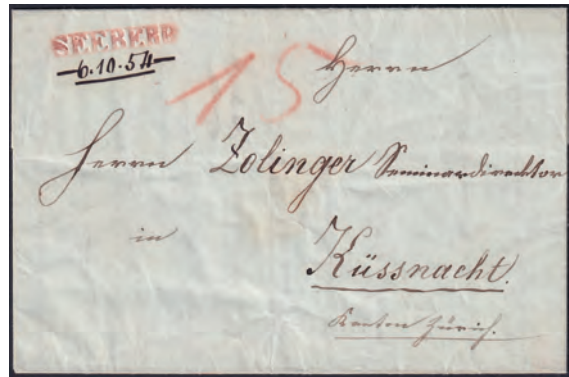 SEEBERG
6.10.54
15
Herrn
Herrn Zolinger Seminardirecktor
in
Küssnacht.
Kanton Zürich.